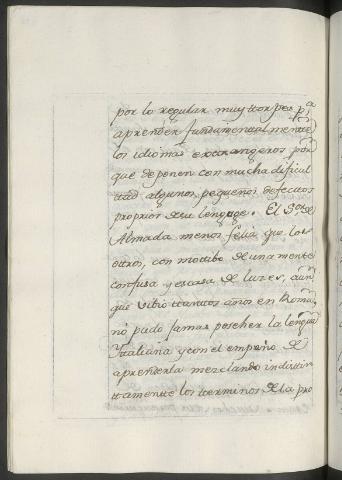 por lo regular muy ttorpes pa
aprender fundamentalmente
los idiomas extrangeros por
que deponen con mucha dificul
ttad algunos pequeños defectos
proprios de su lenguage. El Sor de
Almada menos feliz que los
ottros, con mottibo de una mente
confusa y escasa de luzes, aun
que vibio ttanttos años en Roma,
no pudo jamas poseher la lengua
Ittaliana y con el empeño de
aprenderla mezclando indistin
ttamente los terminos de la pro